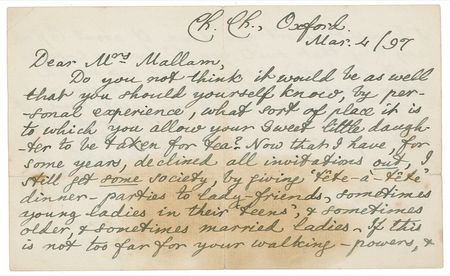 Ch. Ch., Oxford.
Mar. 4/97
Dear Mrs Mallam,
Do you not think it would be as well
that you should yourself know, by per-
sonal experience, what sort of place it is
to which you allow your sweet little daugh-
-ter to be taken for tea? Now that I have, for
some years, declined all invitations out, I
still get some society, by giving "tête-à-tête"
dinner-parties to lady-friends, sometimes
young ladies in their 'teens', & sometimes
older, & sometimes married ladies. If this
is not too far for your walking-powers, &